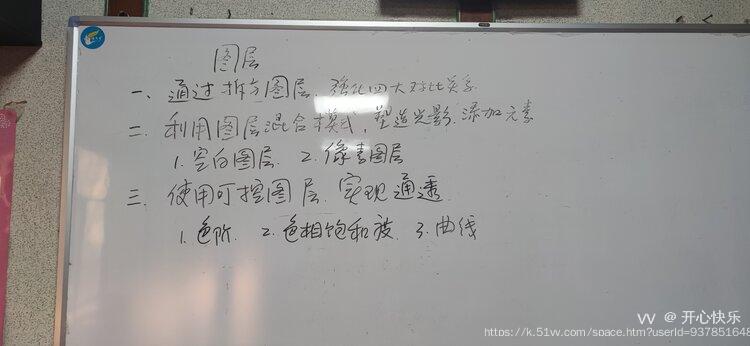 图层
一、通过拆分图层、强化四大对比关系
二、利用图层混合模式，塑造光影、添加元素
1.空白图层 2.像素图层
三、使用可控图层、实现通透
1.色阶、2.色相饱和度、3.曲线
VV @ 开心快乐
https://k.51vv.com/space.htm?userId=937851648